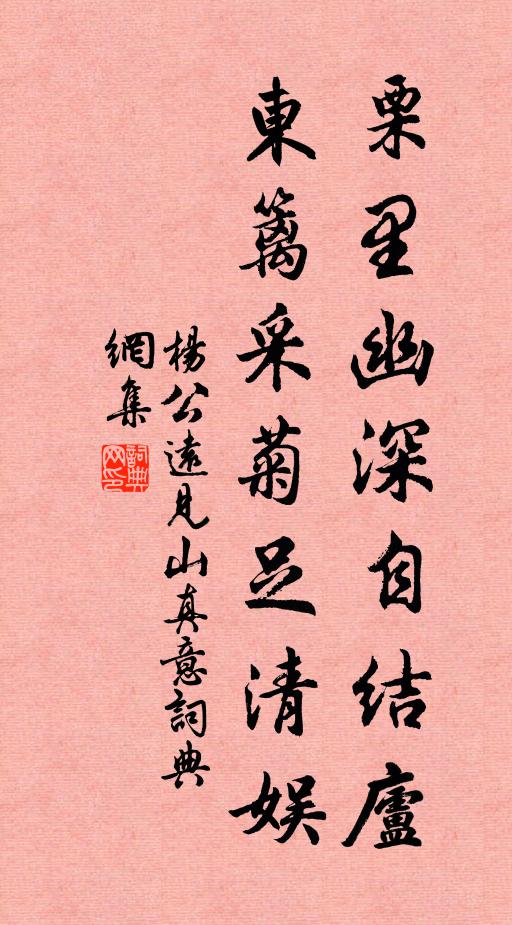 栗里幽深自结廬
東篱采菊足清娱
楊公遠見山真意詞典
網集
詞典
网印